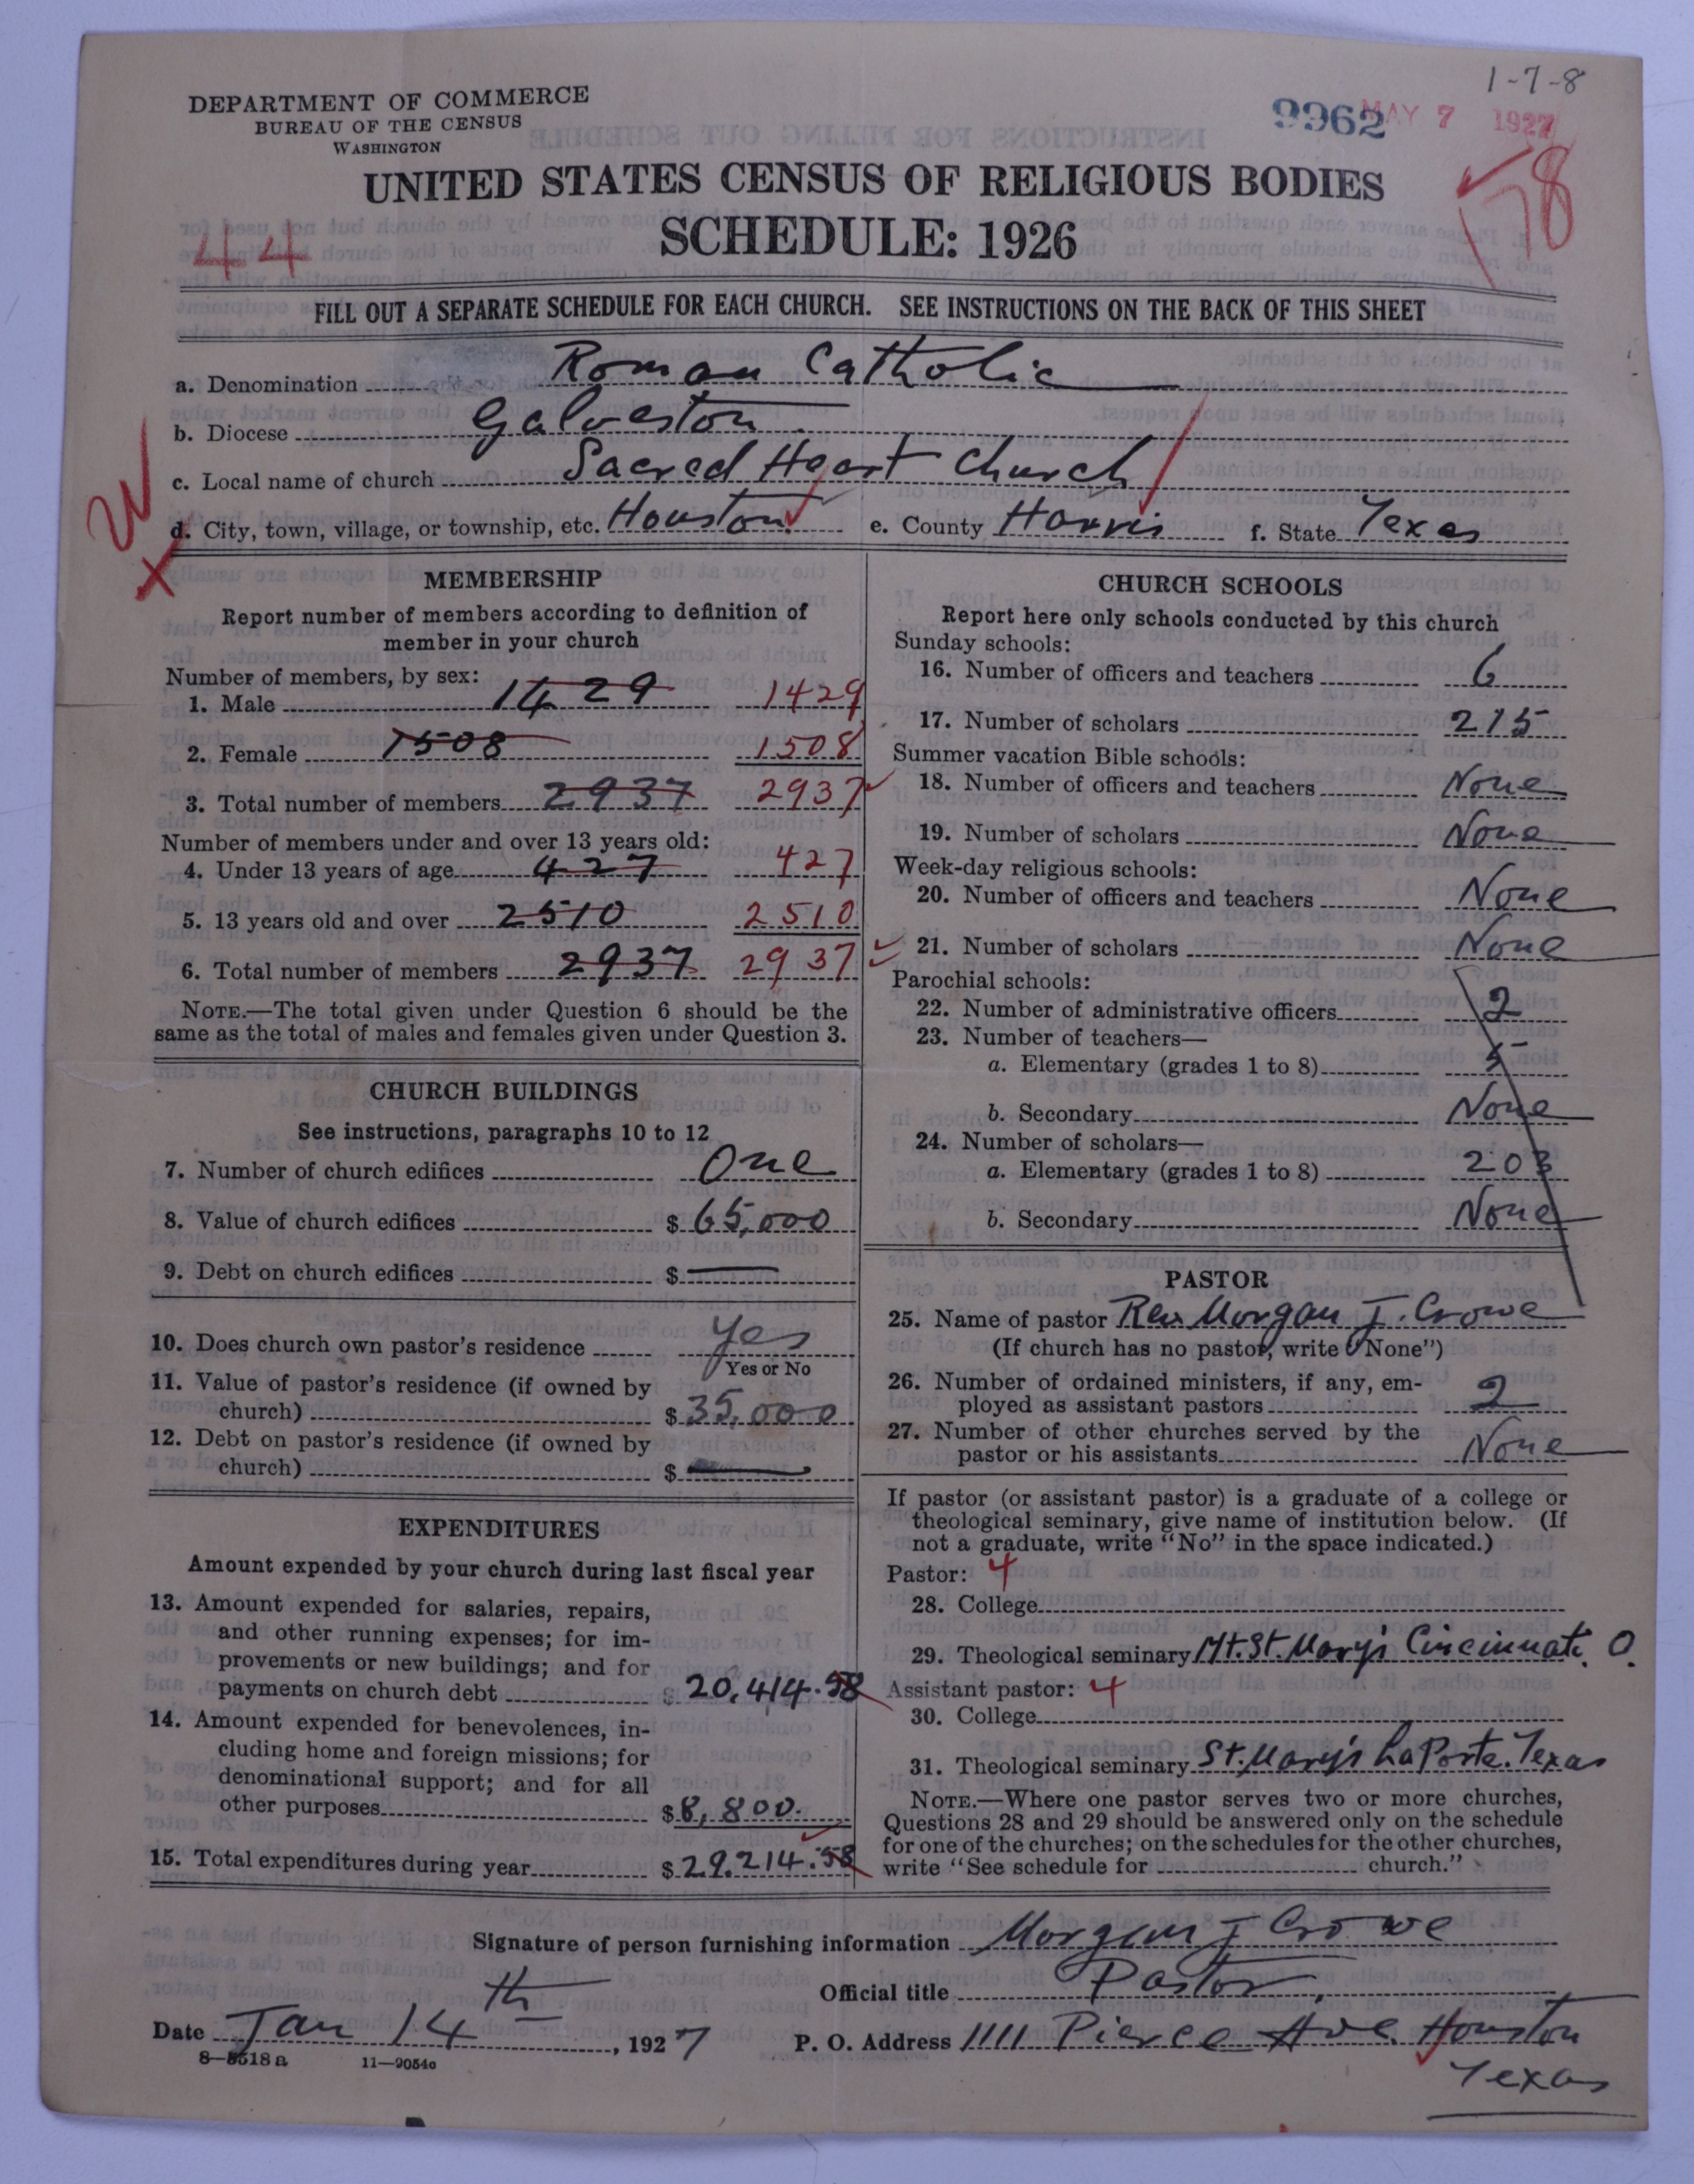 1-7-8
DEPARTMENT OF COMMERCE
BUREAU OF THE CENSUS
WASHINGTON
9962 MAY 7 1927
UNITED STATES CENSUS OF RELIGIOUS BODIES
SCHEDULE: 1926
44
178
FILL OUT A SEPARATE SCHEDULE FOR EACH CHURCH. SEE INSTRUCTIONS ON THE BACK OF THIS SHEET
a. Denomination Roman Catholic
b. Diocese Galveston.
c. Local name of church Sacred Heart Church
W
d. City, town, village, or township, etc. Houston e. County Harris f. State Texas
X
MEMBERSHIP
Report number of members according to definition of
member in your church
Number of members, by sex:
1. Male 1429 1429
2. Female 1508 1508
3. Total number of members 2937 2937
Number of members under and over 13 years old:
4. Under 13 years of age 427 427
5. 13 years old and over 2510 2510
6. Total number of members 2937 2937
NOTE.—The total given under Question 6 should be the
same as the total of males and females given under Question 3.
CHURCH BUILDINGS
See instructions, paragraphs 10 to 12
7. Number of church edifices One
8. Value of church edifices $ 65,000
9. Debt on church edifices $ —
10. Does church own pastor's residence Yes
Yes or No
11. Value of pastor's residence (if owned by
church) $ 35,000
12. Debt on pastor's residence (if owned by
church) $ —
EXPENDITURES
Amount expended by your church during last fiscal year
13. Amount expended for salaries, repairs,
and other running expenses; for im-
provements or new buildings; and for
payments on church debt $ 20,414.58
14. Amount expended for benevolences, in-
cluding home and foreign missions; for
denominational support; and for all
other purposes $ 8,800.
15. Total expenditures during year $ 29,214.58
CHURCH SCHOOLS
Report here only schools conducted by this church
Sunday schools:
16. Number of officers and teachers 6
17. Number of scholars 215
Summer vacation Bible schools:
18. Number of officers and teachers None
19. Number of scholars None
Week-day religious schools:
20. Number of officers and teachers None
21. Number of scholars None
Parochial schools:
22. Number of administrative officers 2
23. Number of teachers—
a. Elementary (grades 1 to 8) 5
b. Secondary None
24. Number of scholars—
a. Elementary (grades 1 to 8) 203
b. Secondary None
PASTOR
25. Name of pastor Rev. Morgan J. Crowe
(If church has no pastor, write "None")
26. Number of ordained ministers, if any, em-
ployed as assistant pastors 2
27. Number of other churches served by the
pastor or his assistants None
If pastor (or assistant pastor) is a graduate of a college or
theological seminary, give name of institution below. (If
not a graduate, write "No" in the space indicated.)
Pastor: 4
28. College
29. Theological seminary Mt. St. Mary's Cincinnati. O.
Assistant pastor: 4
30. College
31. Theological seminary St. Mary's LaPorte. Texas
NOTE.—Where one pastor serves two or more churches,
Questions 28 and 29 should be answered only on the schedule
for one of the churches; on the schedules for the other churches,
write "See schedule for church."
Signature of person furnishing information Morgan J Crowe
Official title Pastor,
Date Jan 14th, 1927 P. O. Address 1111 Pierce Ave. Houston
Texas
8—8518a 11—9054c